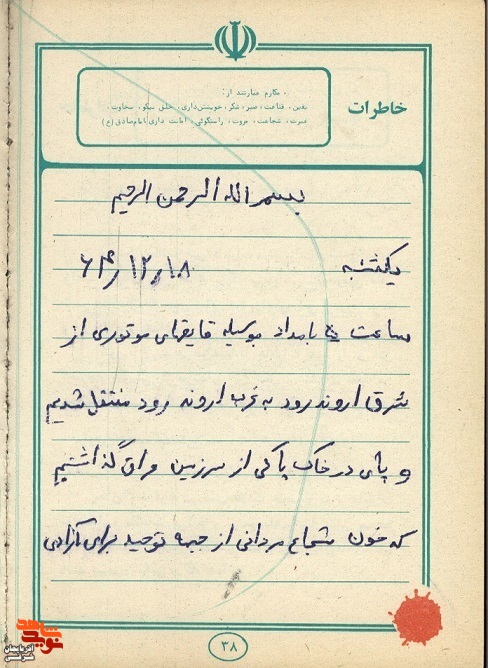 خاطرات
مکارم عبارتند از:
یقین، قناعت، صبر، شکر، خویشتن‌داری، خلق نیکو، سخاوت،
غیرت، شجاعت، مروت، راستگوئی، امانت داری امام صادق (ع)
بسم الله الرحمن الرحیم
یکشنبه ۶۴٫۱۲٫۱۸
ساعت ۵ بامداد بوسیله قایقهای موتوری از
شرق اروند رود به غرب اروند رود منتقل شدیم
و پای در خاک پاکی از سرزمین عراق گذاشتیم
که خون شجاع مردانی از جبهه توحید برای آزادی
۳۸
نوید شاهد
آذربایجان شرقی